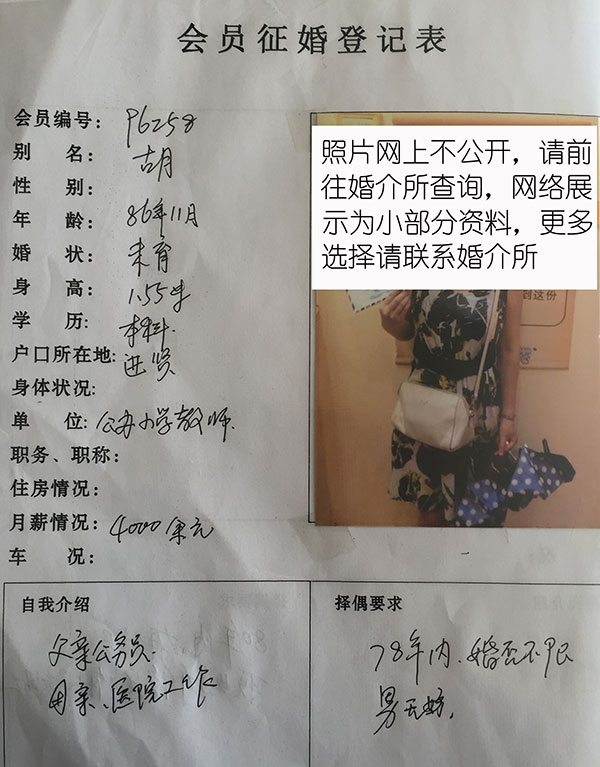 会员征婚登记表
会员编号: P6258
别 名: 胡
性 别:
年 龄: 86年11月
婚 状: 未育
身 高: 1.55米
学 历: 本科.
户口所在地: 进贤
身体状况:
单 位: 公办小学教师.
职务、职称:
住房情况:
月薪情况: 4000余元
车 况:
照片网上不公开，请前
往婚介所查询，网络展
示为小部分资料，更多
选择请联系婚介所
到这份
自我介绍
父亲公务员.
母亲、医院工作
择偶要求
78年内、婚否不限
男无妨.